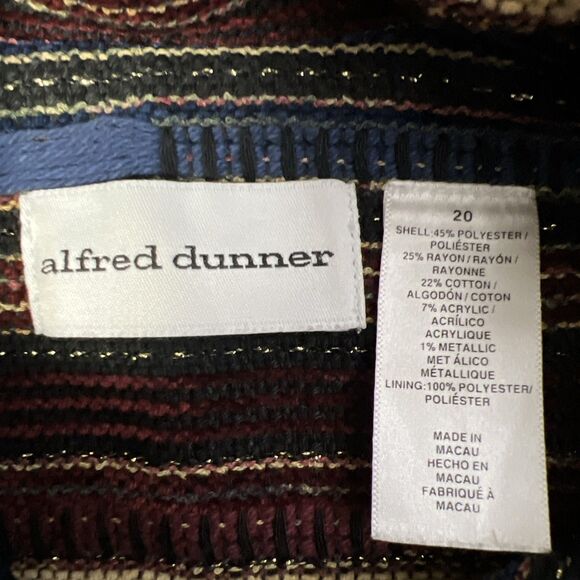 alfred dunner
20
SHELL:45% POLYESTER/
POLIÉSTER
25% RAYON/RAYÓN/
RAYONNE
22% COTTON/
ALGODÓN/COTON
7% ACRYLIC/
ACRÍLICO
ACRYLIQUE
1% METALLIC
MET ÁLICO
MÉTALLIQUE
LINING:100% POLYESTER/
POLIÉSTER
MADE IN
MACAU
HECHO EN
MACAU
FABRIQUÉ À
MACAU